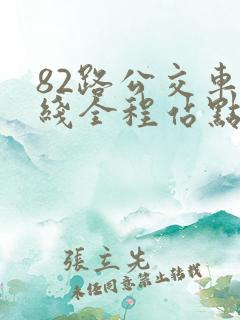 82路公交車
綫全程佔點
張立先
未經同意禁止转载